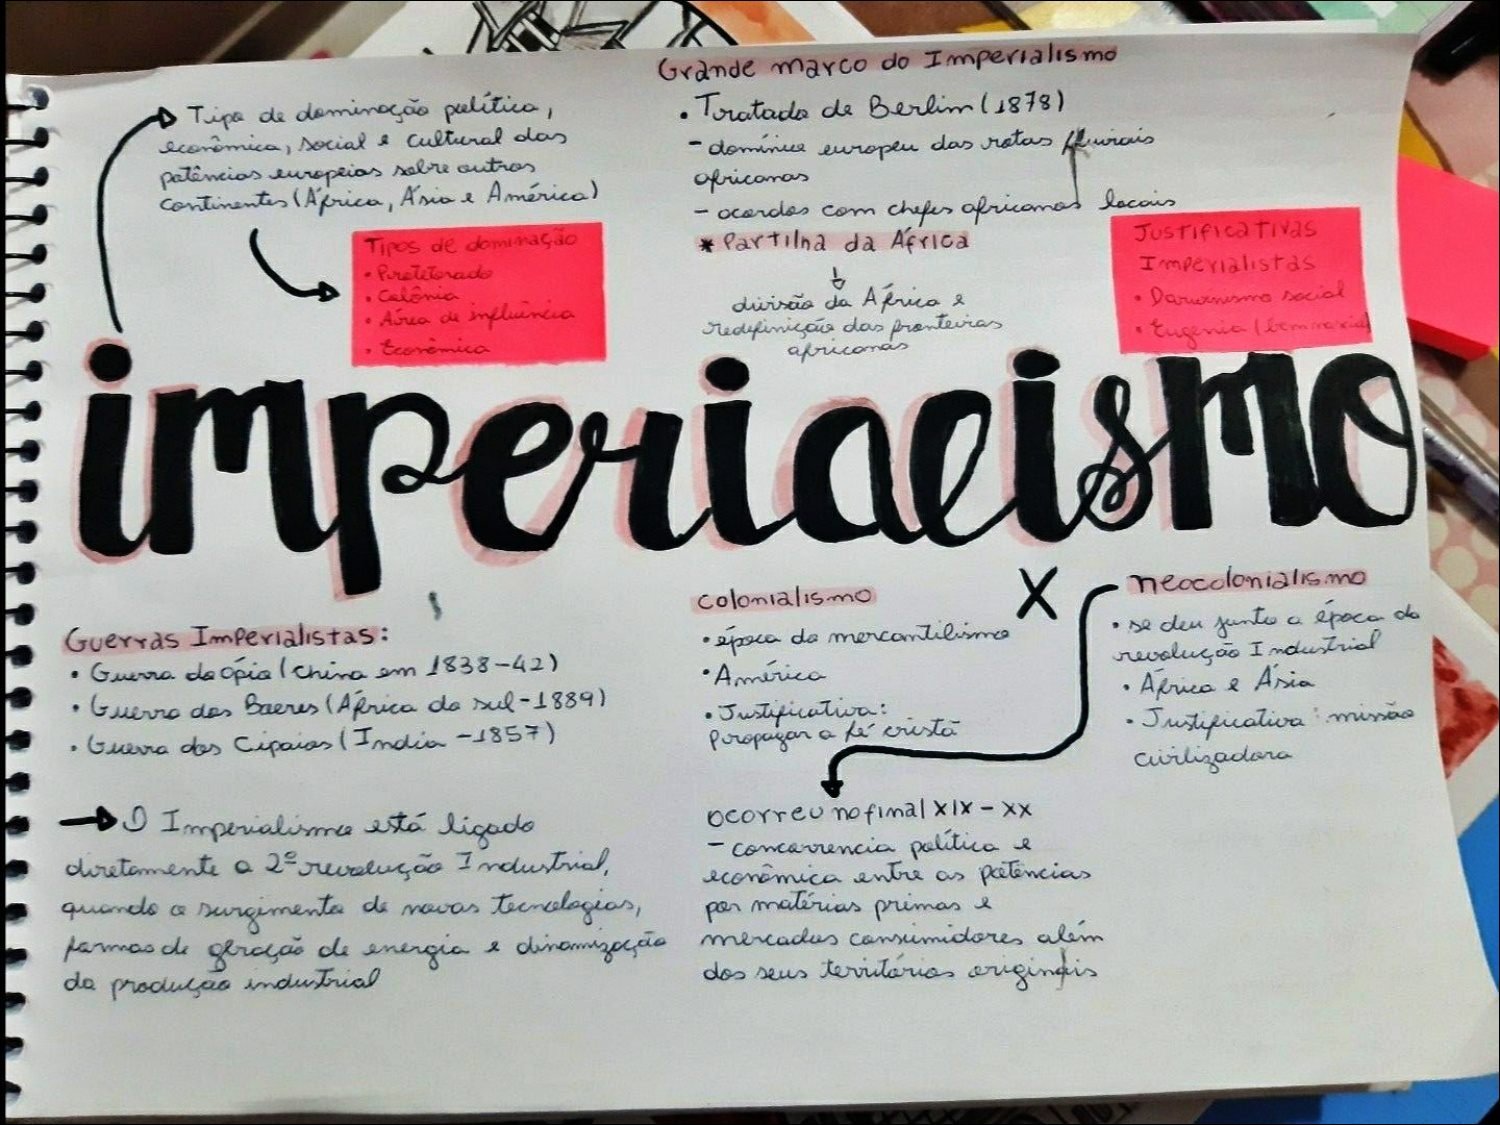 Tipo de dominação política,
econômica, social e cultural das
potências europeias sobre outros
continentes (África, Ásia e América)
Tipos de dominação
• Protetorado
• Colônia
• Área de influência
• Econômica
Grande marco do Imperialismo
• Tratado de Berlim (1878)
- domínio europeu das rotas fluviais
africanas
- acordos com chefes africanos locais
* Partilha da África
divisão da África e
redefinição das fronteiras
africanas
Justificativas
Imperialistas
• Darwinismo social
• Eugenia (bem nascido)
imperialismo
Guerras Imperialistas:
• Guerra do ópio (China em 1838-42)
• Guerra dos Boeres (África do sul-1889)
• Guerra dos Cipaios (Índia -1857)
O Imperialismo está ligado
diretamente a 2ª revolução Industrial,
quando o surgimento de novas tecnologias,
formas de geração de energia e dinamização
da produção industrial
colonialismo
• época do mercantilismo
• América
• Justificativa:
Propagar a fé cristã
X
neocolonialismo
• se deu junto a época da
revolução Industrial
• África e Ásia
• Justificativa: missão
civilizadora
ocorreu no final XIX - XX
- concorrencia política e
econômica entre as potências
por matérias primas e
mercados consumidores além
dos seus territórios originais